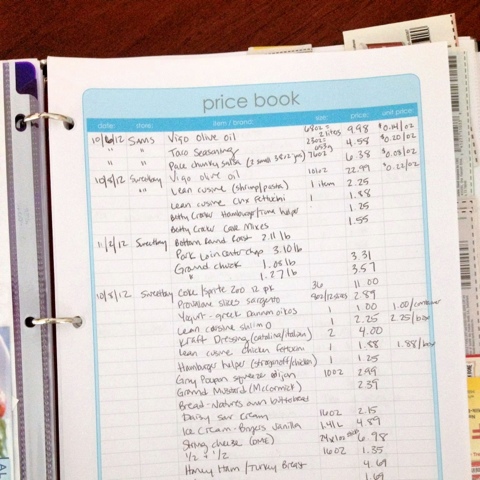 price book
date: store: item / brand: size: price: unit price:
10/6/12 Sams Vigo olive oil 68oz = 2 liters 9.98 $0.14/oz
" " Taco Seasoning 23oz 4.58 $0.20/oz
" " Pace chunky salsa (2 small 38oz jars) 76oz 6.38 $0.08/oz
10/8/12 Sweetbay Vigo olive oil 101oz 22.99 $0.22/oz
" Lean cuisine (shrimp/pasta) 1 item 2.25
Lean cuisine chx fettuchini 1 1.88
Betty Crocker Hamburger/Tuna helper 1.25
Betty Crocker Cake Mixes 1.55
11/2/12 Sweetbay Bottom Round Roast 2.11 lb
Pork Loin Center chop 3.10 lb
Ground chuck 1.08 lb 3.31
" 1.27 lb 3.57
10/8/12 Sweetbay Coke/Sprite Zero 12 pk 36 11.00
Provolone slices Sargento 8oz/12 slices 2.89
Yogurt - greek Dannon oikos 1 1.00 1.00/container
Lean cuisine shrimp 1 2.25 2.25/box
Kraft Dressing (catalina/italian) 2 4.00
Lean cuisine chicken fettucini 1 1.88 1.88/box
Hamburger helper (stroganoff/chicken) 1 1.25
Grey Poupon squeeze dijon 10oz 2.99
Ground Mustard (McCormick) 2.39
Bread - Natures own butterbread
Daisy sour cream 16oz 2.15
Ice Cream - Breyers Vanilla 1.41L 4.89
String cheese 24x1oz 6.98
1/2 + 1/2 16oz 1.35
Honey Ham / Turkey Breast 4.69
1.69